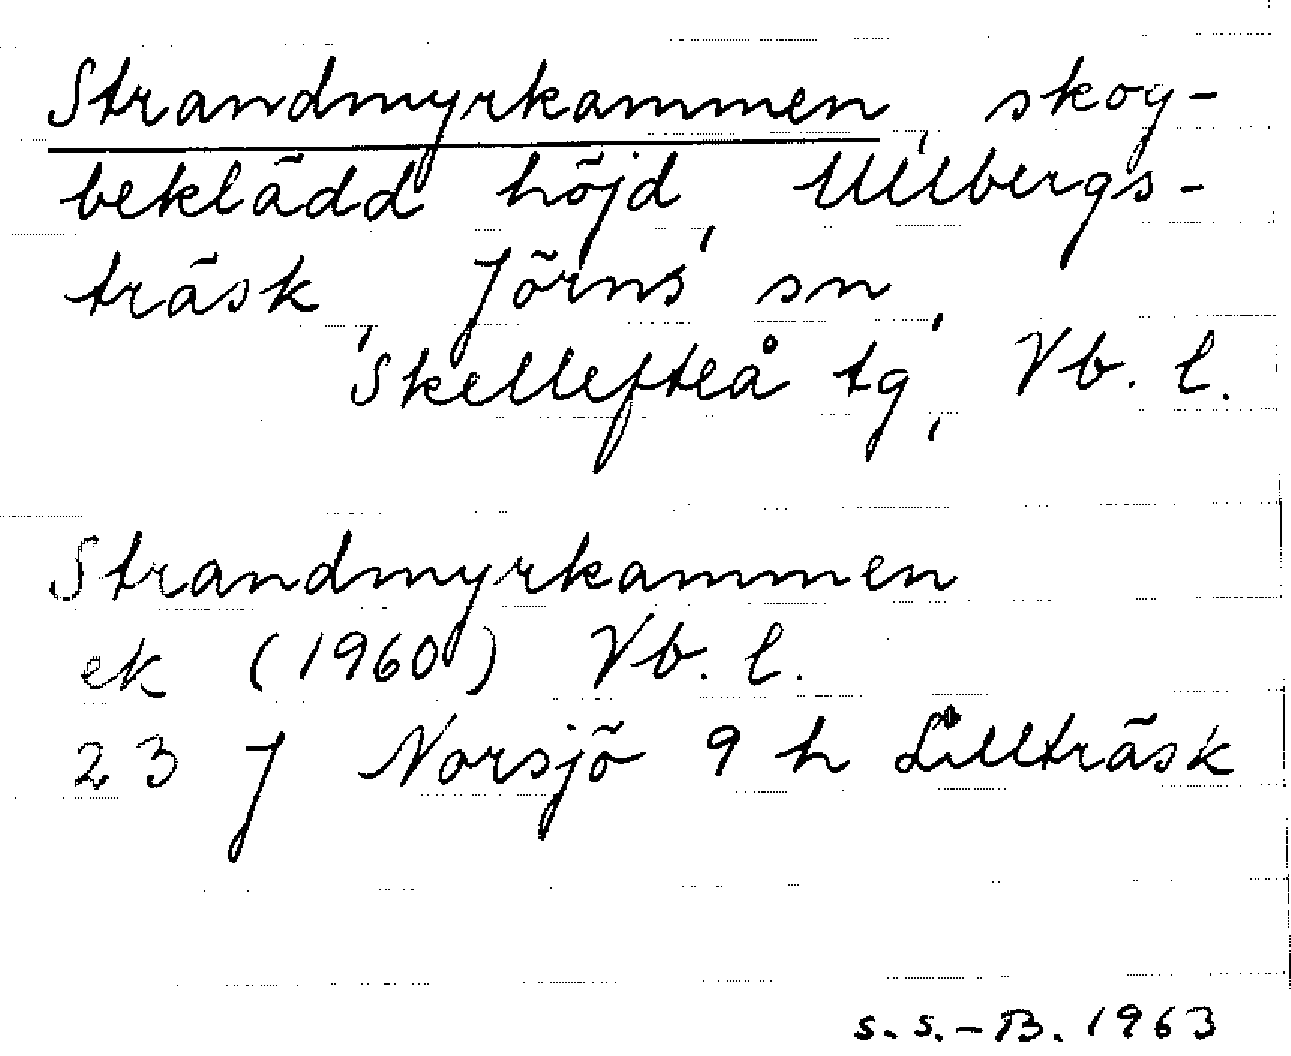 Strandmyrkammen, skog-
beklädd höjd, Ullbergs-
träsk, Jörns sn,
Skellefteå tg, Vb. l.
Strandmyrkammen
ek (1960) Vb. l.
23 J Norsjö 9 h Lillträsk
S.S.-B. 1963